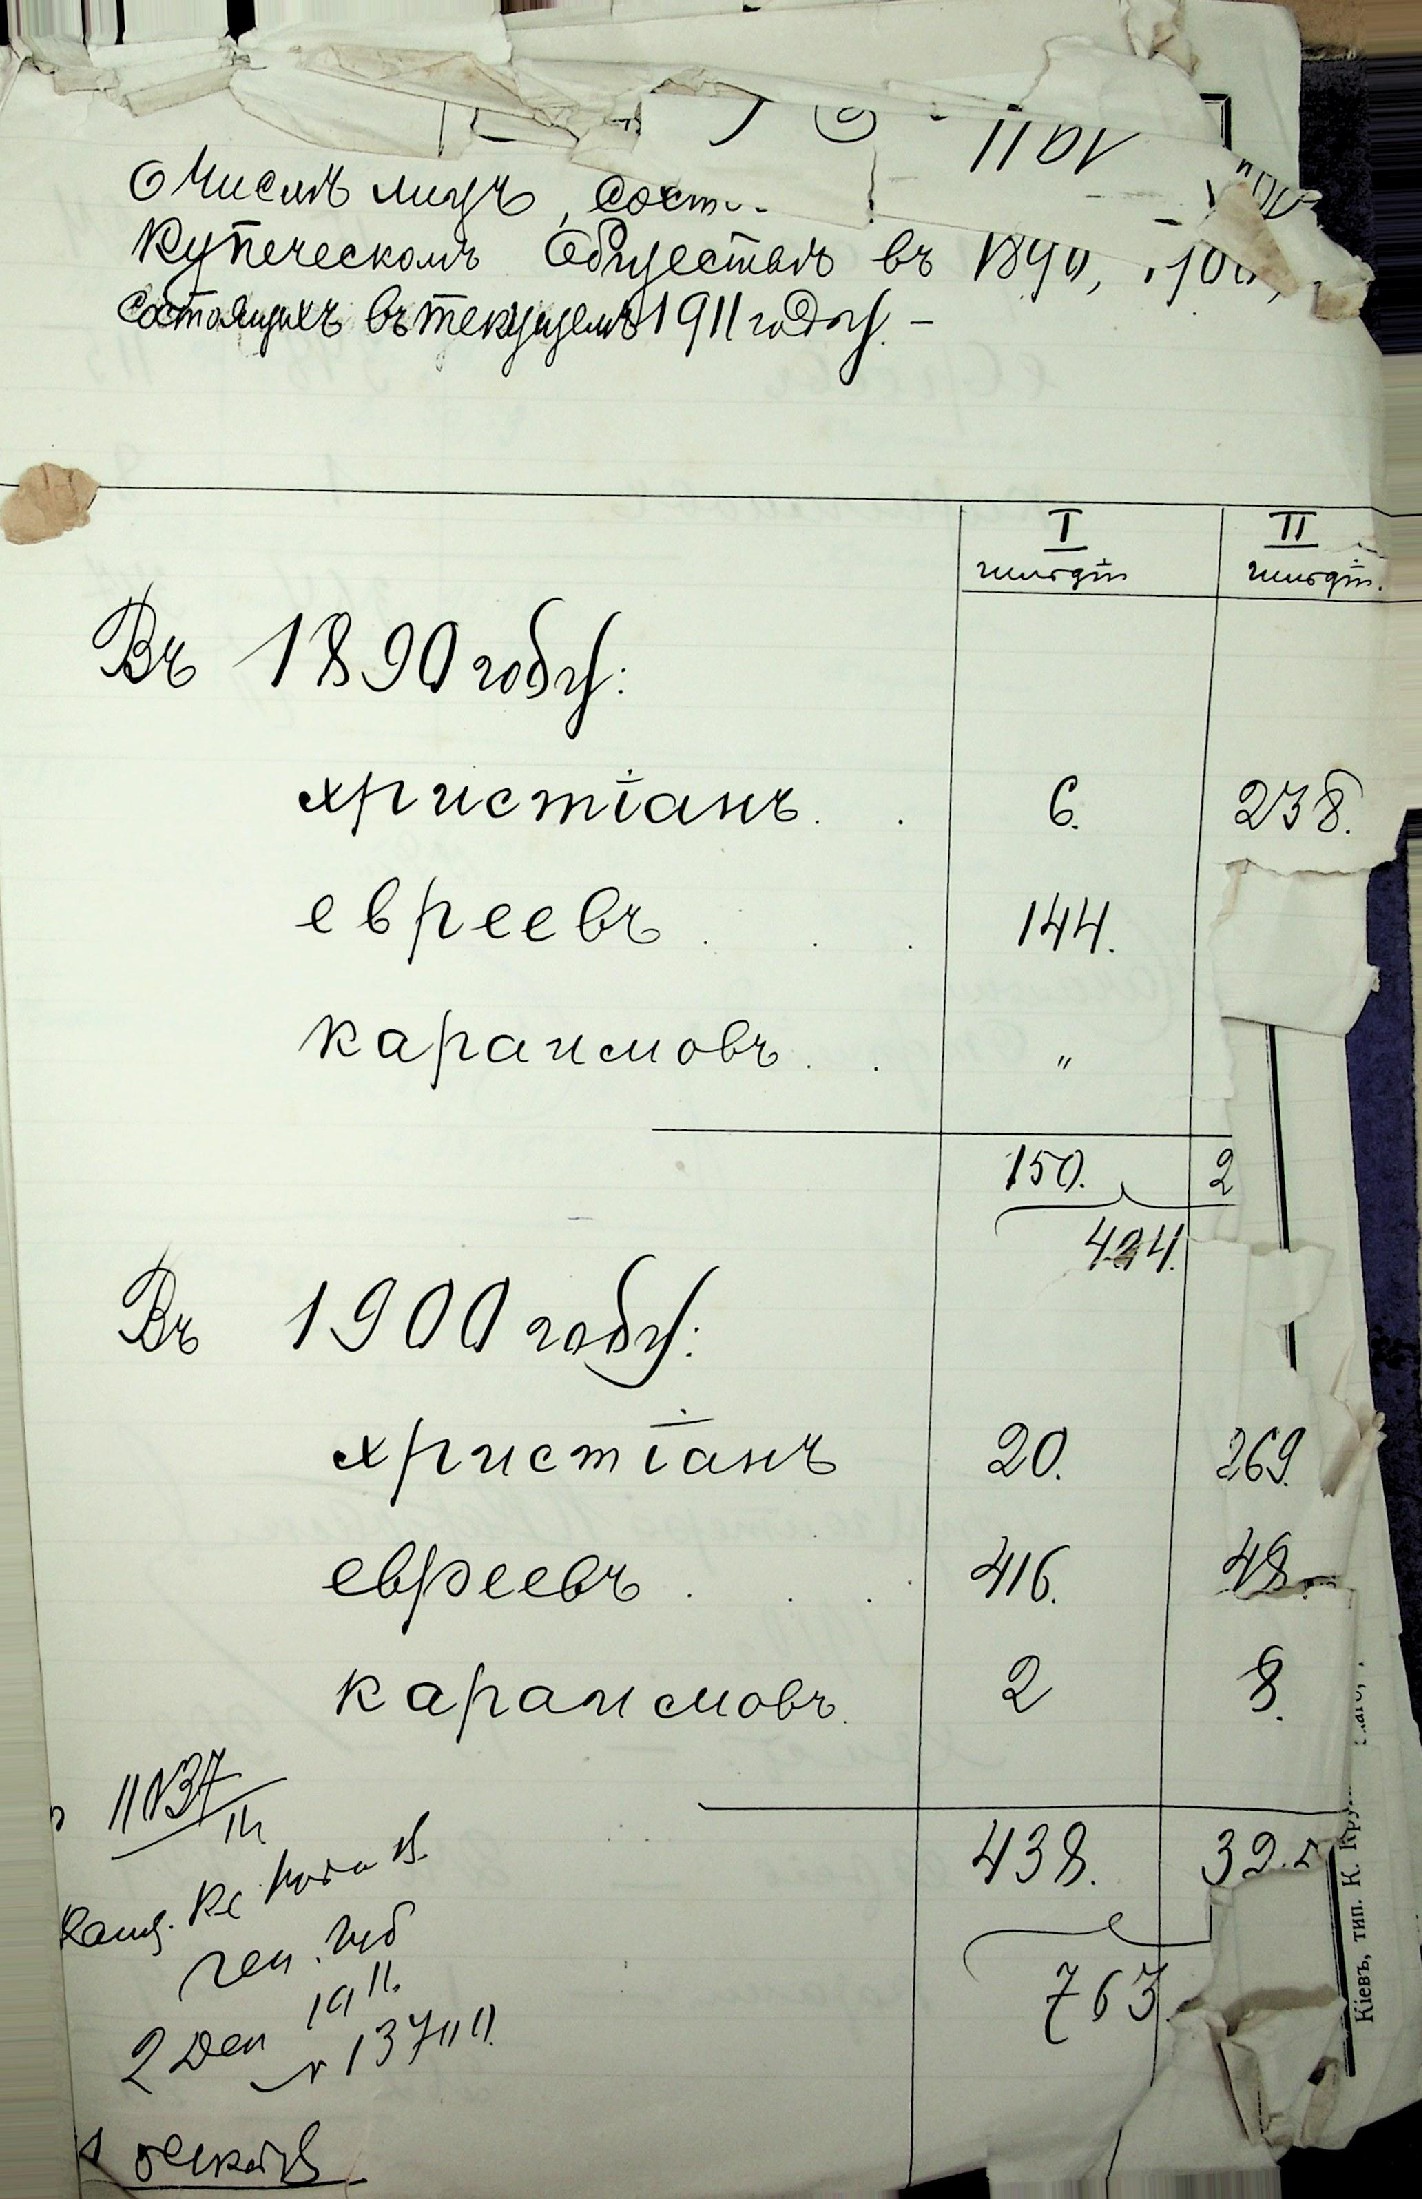 1911
О числѣ лицъ, сост
Купеческомъ Обществѣ въ 1890, 1900,
состоящихъ въ текущемъ 1911 году. –
I II
гильдіи гильдіи.
Въ 1890 году:
христіанъ . . 6. 238.
евреевъ . . . 144.
караимовъ . . "
150. 2
424.
Въ 1900 году:
христіанъ 20. 269.
евреевъ . . . 416. 48.
караимовъ. 2 8.
438. 32
763.
ген. губ
2 Дек 1911.
№ 13711
Кіевъ, тип. К. Кру